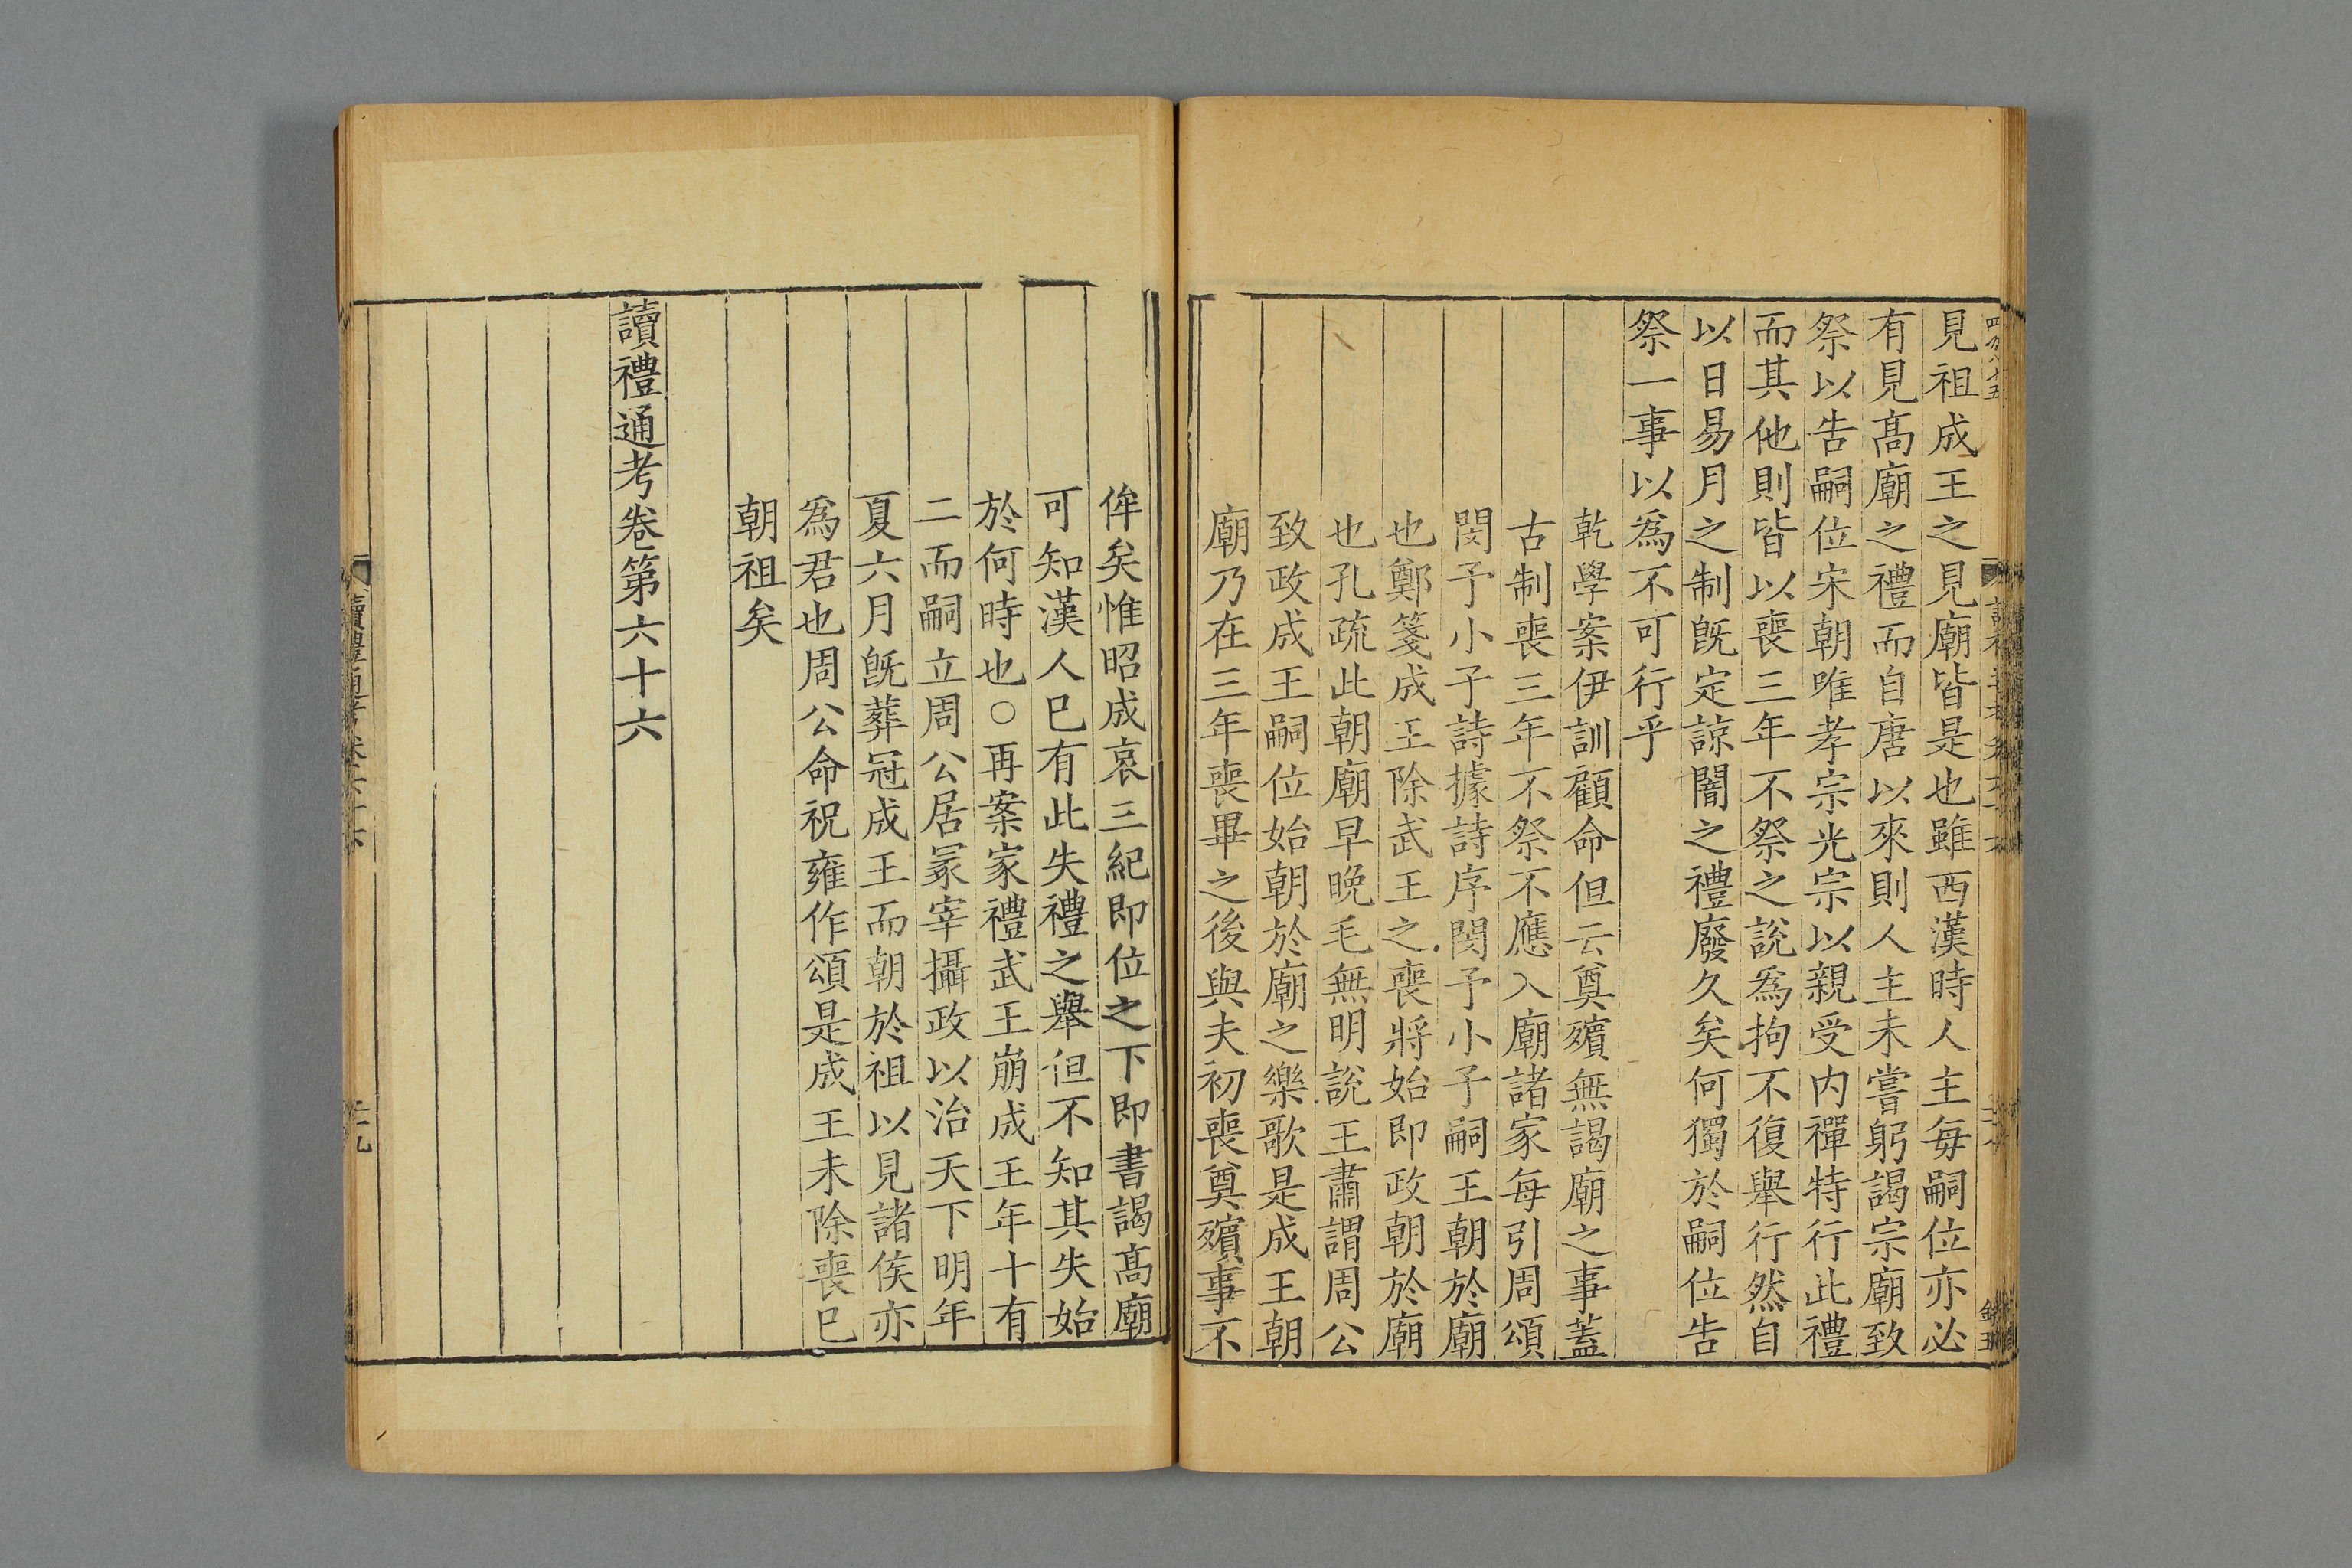 見祖成王之見廟皆是也雖西漢時人主每嗣位亦必
有見髙廟之禮而自唐以來則人主未嘗躬謁宗廟致
祭以告嗣位宋朝唯孝宗光宗以親受内禪特行此禮
而其他則皆以喪三年不祭之說爲拘不復舉行然自
以日易月之制旣定諒闇之禮廢久矣何獨於嗣位告
祭一事以爲不可行乎
乾學案伊訓顧命但云奠殯無謁廟之事蓋
古制喪三年不祭不應入廟諸家每引周頌
閔予小子詩據詩序閔予小子嗣王朝於廟
也鄭箋成王除武王之喪將始即政朝於廟
也孔疏此朝廟早晚毛無明說王肅謂周公
致政成王嗣位始朝於廟之樂歌是成王朝
廟乃在三年喪畢之後與夫初喪奠殯事不
侔矣惟昭成哀三紀即位之下即書謁髙廟
可知漢人已有此失禮之舉但不知其失始
於何時也○再案家禮武王崩成王年十有
二而嗣立周公居冡宰攝政以治天下明年
夏六月旣葬冠成王而朝於祖以見諸侯亦
爲君也周公命祝雍作頌是成王未除喪已
朝祖矣
讀禮通考卷第六十六
讀禮通考卷六十六